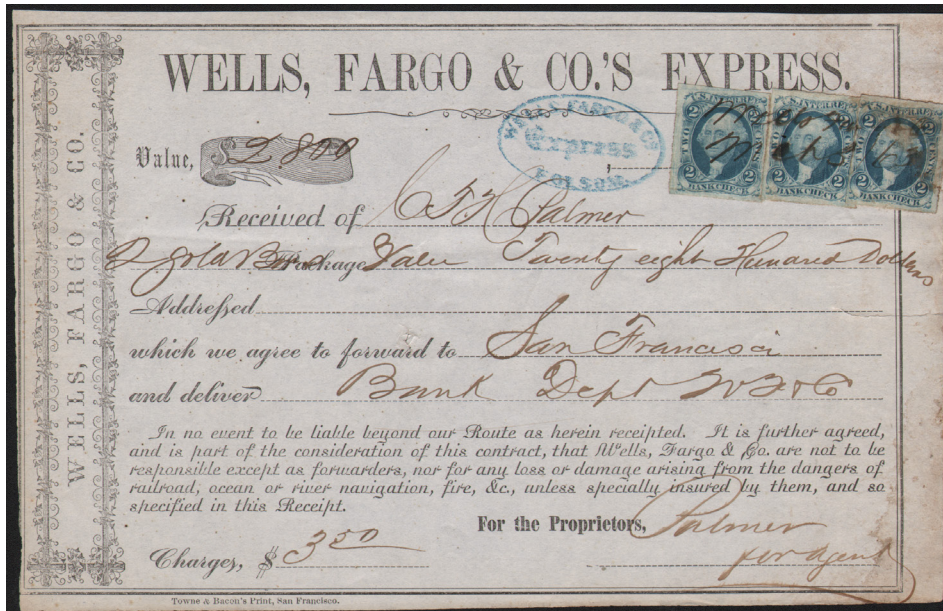 WELLS, FARGO & CO.'S EXPRESS.
WELLS, FARGO & CO.
WELLS, FARGO & CO
Express
FOLSOM.
U.S. INTER. REV.
2 TWO CENTS 2
BANK CHECK
Value, $2800
Received of C T H Palmer
2 gold Bars Package Value Twenty eight Hundred Dollars
Addressed
which we agree to forward to San Francisco
and deliver Bank Dept W F & Co
In no event to be liable beyond our Route as herein receipted. It is further agreed,
and is part of the consideration of this contract, that Wells, Fargo & Co. are not to be
responsible except as forwarders, nor for any loss or damage arising from the dangers of
railroad, ocean or river navigation, fire, &c., unless specially insured by them, and so
specified in this Receipt.
For the Proprietors, Palmer
Charges, $ 3 50
for agent
Towne & Bacon's Print, San Francisco.